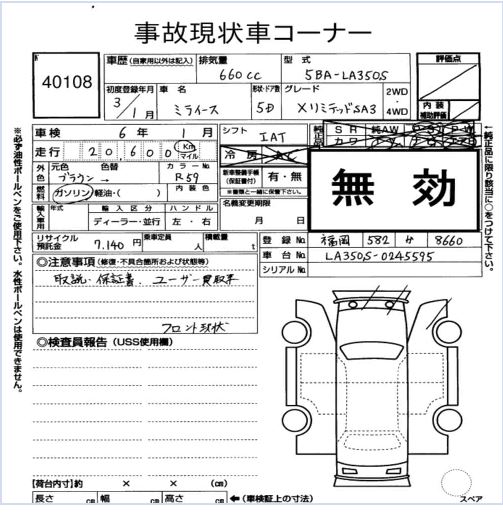 事故現状車コーナー
40108
車歴(自家用以外は記入) 排気量 型式 評価点
660cc 5BA-LA350S
初度登録年月 車名 形状・ドア数 グレード 2WD
3/1月 ミライース 5D XリミテッドSA3 4WD
内装 補助評価
車検 6年 1月 シフト IAT 純正品 SR 純AW PS PW
走行 20,600 Km マイル 冷房 AC カワ
外色 元色 色替 カラーNo. 新車整備手帳(保証書付) 有・無
ブラウン→ R59 ※車検と一緒に保管下さい。
燃料 ガソリン・軽油・( ) 内装色 名義変更期限
輸入車用 年式 輸入区分 ハンドル
ディーラー・並行 左・右 月 日
無効
リサイクル預託金 7,140円 乗車定員 人 積載量 t
登録No. 福岡 582 か 8660
車台No. LA350S-0245595
シリアルNo.
◎注意事項(修復・不具合箇所および状態等)
取説・保証書・ユーザー買取車
フロント現状
◎検査員報告(USS使用欄)
【荷台内寸】約 × × (cm)
長さ cm 幅 cm 高さ cm ←(車検証上の寸法)
スペア
※必ず油性ボールペンをご使用下さい。水性ボールペンは使用できません。
←純正品に限り該当に○をつけて下さい。